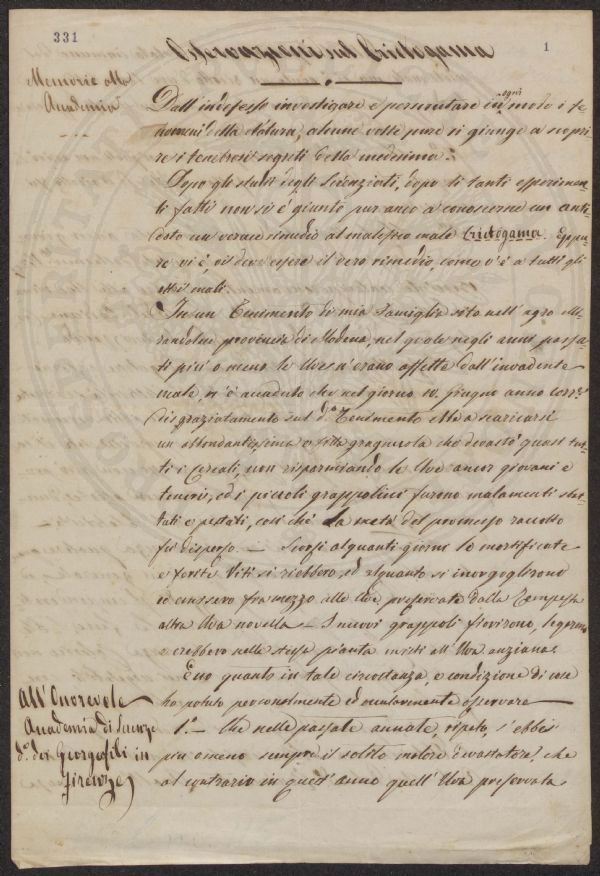 331
1
Osservazioni sul Crictogama
Memorie alla
Academia
Dall'indefesso investigare e perscrutare in ogni modo i fe-
nomeni della Natura, alcune volte pure si giunge a scopri-
re i tenebrosi segreti della medesima.
Dopo gli studi degli Scienziati, dopo li tanti esperimen-
ti fatti non si è giunto pur anco a conoscerne un anti-
doto un verace rimedio al malefico male Crictogama. Eppu-
re vi è, vi deve essere il vero rimedio, come v'è a tutti gli
altri mali.
In un Tenimento di mia Famiglia sito nell'agro Mi-
randolese provincia di Modena, nel quale negli anni passa-
ti più o meno le Uve n'erano affette dall'invadente
male, vi è accaduto che nel giorno 10. Giugno anno corr.e
disgraziatamente sul d.o Tenimento ebbe a scaricarsi
un abbondantissima e fitta gragnuola che devastò quasi tut-
ti i Cereali, non risparmiando le Uve ancor giovani e
tenere, ed i piccoli grappolini furono malamenti sbat-
tuti e pestati, così chè la metà del promesso raccolto
fu disperso. — Scorsi alquanti giorni le mortificate
e ferite Viti si riebbero, ed alquanto si inorgoglirono
ed emissero frammezzo alle Uve preservate dalla Tempesta
altra Uva novella — I nuovi grappoli fiorirono, legarono
e crebbero nelle stesse pianta misti all'Uva anziana.
Ecco quanto in tale circostanza, e condizione di cose
ho potuto personalmente ed oculatamente osservare
1.o — Che nelle passate annate, ripeto, s'ebbe
più o meno sempre il solito malore devastatore, che
al contrario in quest'anno quell'Uva preservata
All'Onorevole
Academia di Scienze
d.a dei Georgofili in
Firenze